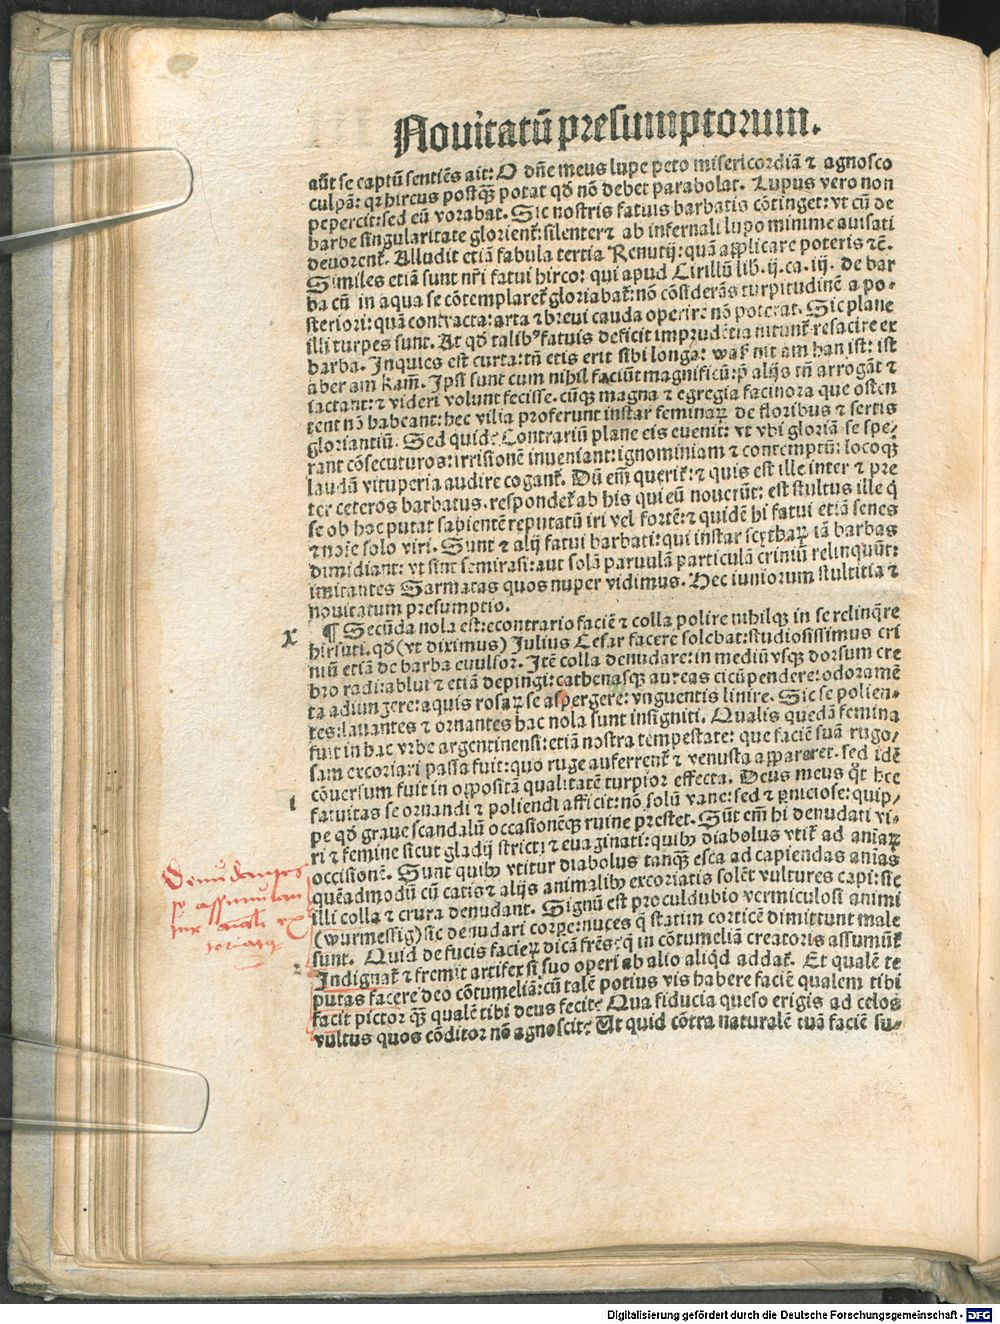 Nouitatū presumptorum.
aūt se captū sentiēs ait: O dn̄e meus lupe peto misericordiā ⁊ agnosco
culpā: qꝛ hircus postqꝫ potat qd̄ nō debet parabolat. Lupus vero non
pepercit: sed eū vorabat. Sic nostris fatuis barbatis cōtinget: vt cū de
barbe singularitate glorient̄: silenter ⁊ ab infernali lupo minime auisati
deuorent̄. Alludit etiā fabula tertia Renutij: quā applicare poteris ⁊c̄.
Similes etiā sunt nr̄i fatui hirco: qui apud Cirillū lib. ij. ca. iij. de bar
ba cū in aqua se cōtemplaret̄ gloriabat̄: nō cōsiderās turpitudinē a po-
steriori: quā contracta: arta ⁊ breui cauda operire nō poterat. Sic plane
illi turpes sunt. At qd̄ talibꝰ fatuis deficit imprudētia nitunt̄ resacire ex
barba. Inquies est curta: tn̄ etis erit sibi longa: was nit am han ist: ist
aber am kam̄. Ipsi sunt cum nihil faciūt magnificū: p̄ alijs tn̄ arrogāt ⁊
iactant: ⁊ videri volunt fecisse. cūqꝫ magna ⁊ egregia facinora que osten
tent nō habeant: hec vilia proferunt instar feminaꝝ de floribus ⁊ sertis
gloriantiū. Sed quid? Contrariū plane eis euenit: vt vbi gloriā se spe-
rant cōsecuturos: irrisionē inueniant: ignominiam ⁊ contemptū: locoqꝫ
laudū vituperia audire cogant̄. Dū em̄ querit̄: ⁊ quis est ille inter ⁊ pre
ter ceteros barbatus. respondet̄ ab his qui eū nouerūt: est stultus ille q̇
se ob hoc putat sapientē reputatū iri vel fortē: ⁊ quidē hi fatui etiā senes
⁊ noīe solo viri. Sunt ⁊ alij fatui barbati: qui instar scythaꝝ iā barbas
dimidiant: vt sint semirasi: aut solā paruulā particulā criniū relinquūt:
imitantes Sarmatas quos nuper vidimus. Hec iuniorum stultitia ⁊
nouitatum presumptio.
x ¶ Secūda nola est: econtrario faciē ⁊ colla polire nihilqꝫ in se relinq̄re
hirsuti. qd̄ (vt diximus) Julius Cesar facere solebat: studiosissimus cri
niū etiā de barba euulsor. Itē colla denudare: in mediū vsqꝫ dorsum cre
bro radi: ablui ⁊ etiā depingi: cathenasqꝫ aureas circūpendere: odoramē
ta adiungere: aquis rosaꝝ se aspergere: vnguentis linire. Sic se polien-
tes: lauantes ⁊ ornantes hac nola sunt insigniti. Qualis quedā femina
fuit in hac vrbe argentinensi: etiā nostra tempestate: que faciē suā rugo-
sam excoriari passa fuit: quo ruge auferrent̄ ⁊ venusta appareret. sed idē
cōuersum fuit in oppositā qualitatē turpior effecta. Deus meus q̊t hec
1 fatuitas se ornandi ⁊ poliendi afficit: nō solū vane: sed ⁊ ꝑniciose: quip-
pe qd̄ graue scandalū occasionēqꝫ ruine prestet. Sūt em̄ hi denudati vi-
ri ⁊ femine sicut gladij stricti ⁊ euaginati: quibꝫ diabolus vtit̄ ad aniaꝝ
occisionē. Sunt quibꝫ vtitur diabolus tanqꝫ esca ad capiendas aīas
quēadmodū cū catis ⁊ alijs animalibꝫ excoriatis solēt vultures capi: sic
illi colla ⁊ crura denudant. Signū est proculdubio vermiculosi animi
(wurmessig) sic denudari corpe: nuces q̇ statim corticē dimittunt male
sunt. Quid de fucis facieꝝ dicā fr̄es? q̇ in cōtumeliā creatoris assumūt̄
2 Indignat̄ ⁊ fremit artifex si suo operi ab alio aliqd̄ addat̄. Et qualē te
putas facere deo cōtumeliā: cū talē potius vis habere faciē qualem tibi
facit pictor qꝫ qualē tibi deus fecit? Qua fiducia queso erigis ad celos
vultus quos cōditor nō agnoscit? Ut quid cōtra naturalē tuā faciē su-
Denudantes
se assimulan
tur
Digitalisierung gefördert durch die Deutsche Forschungsgemeinschaft - DFG